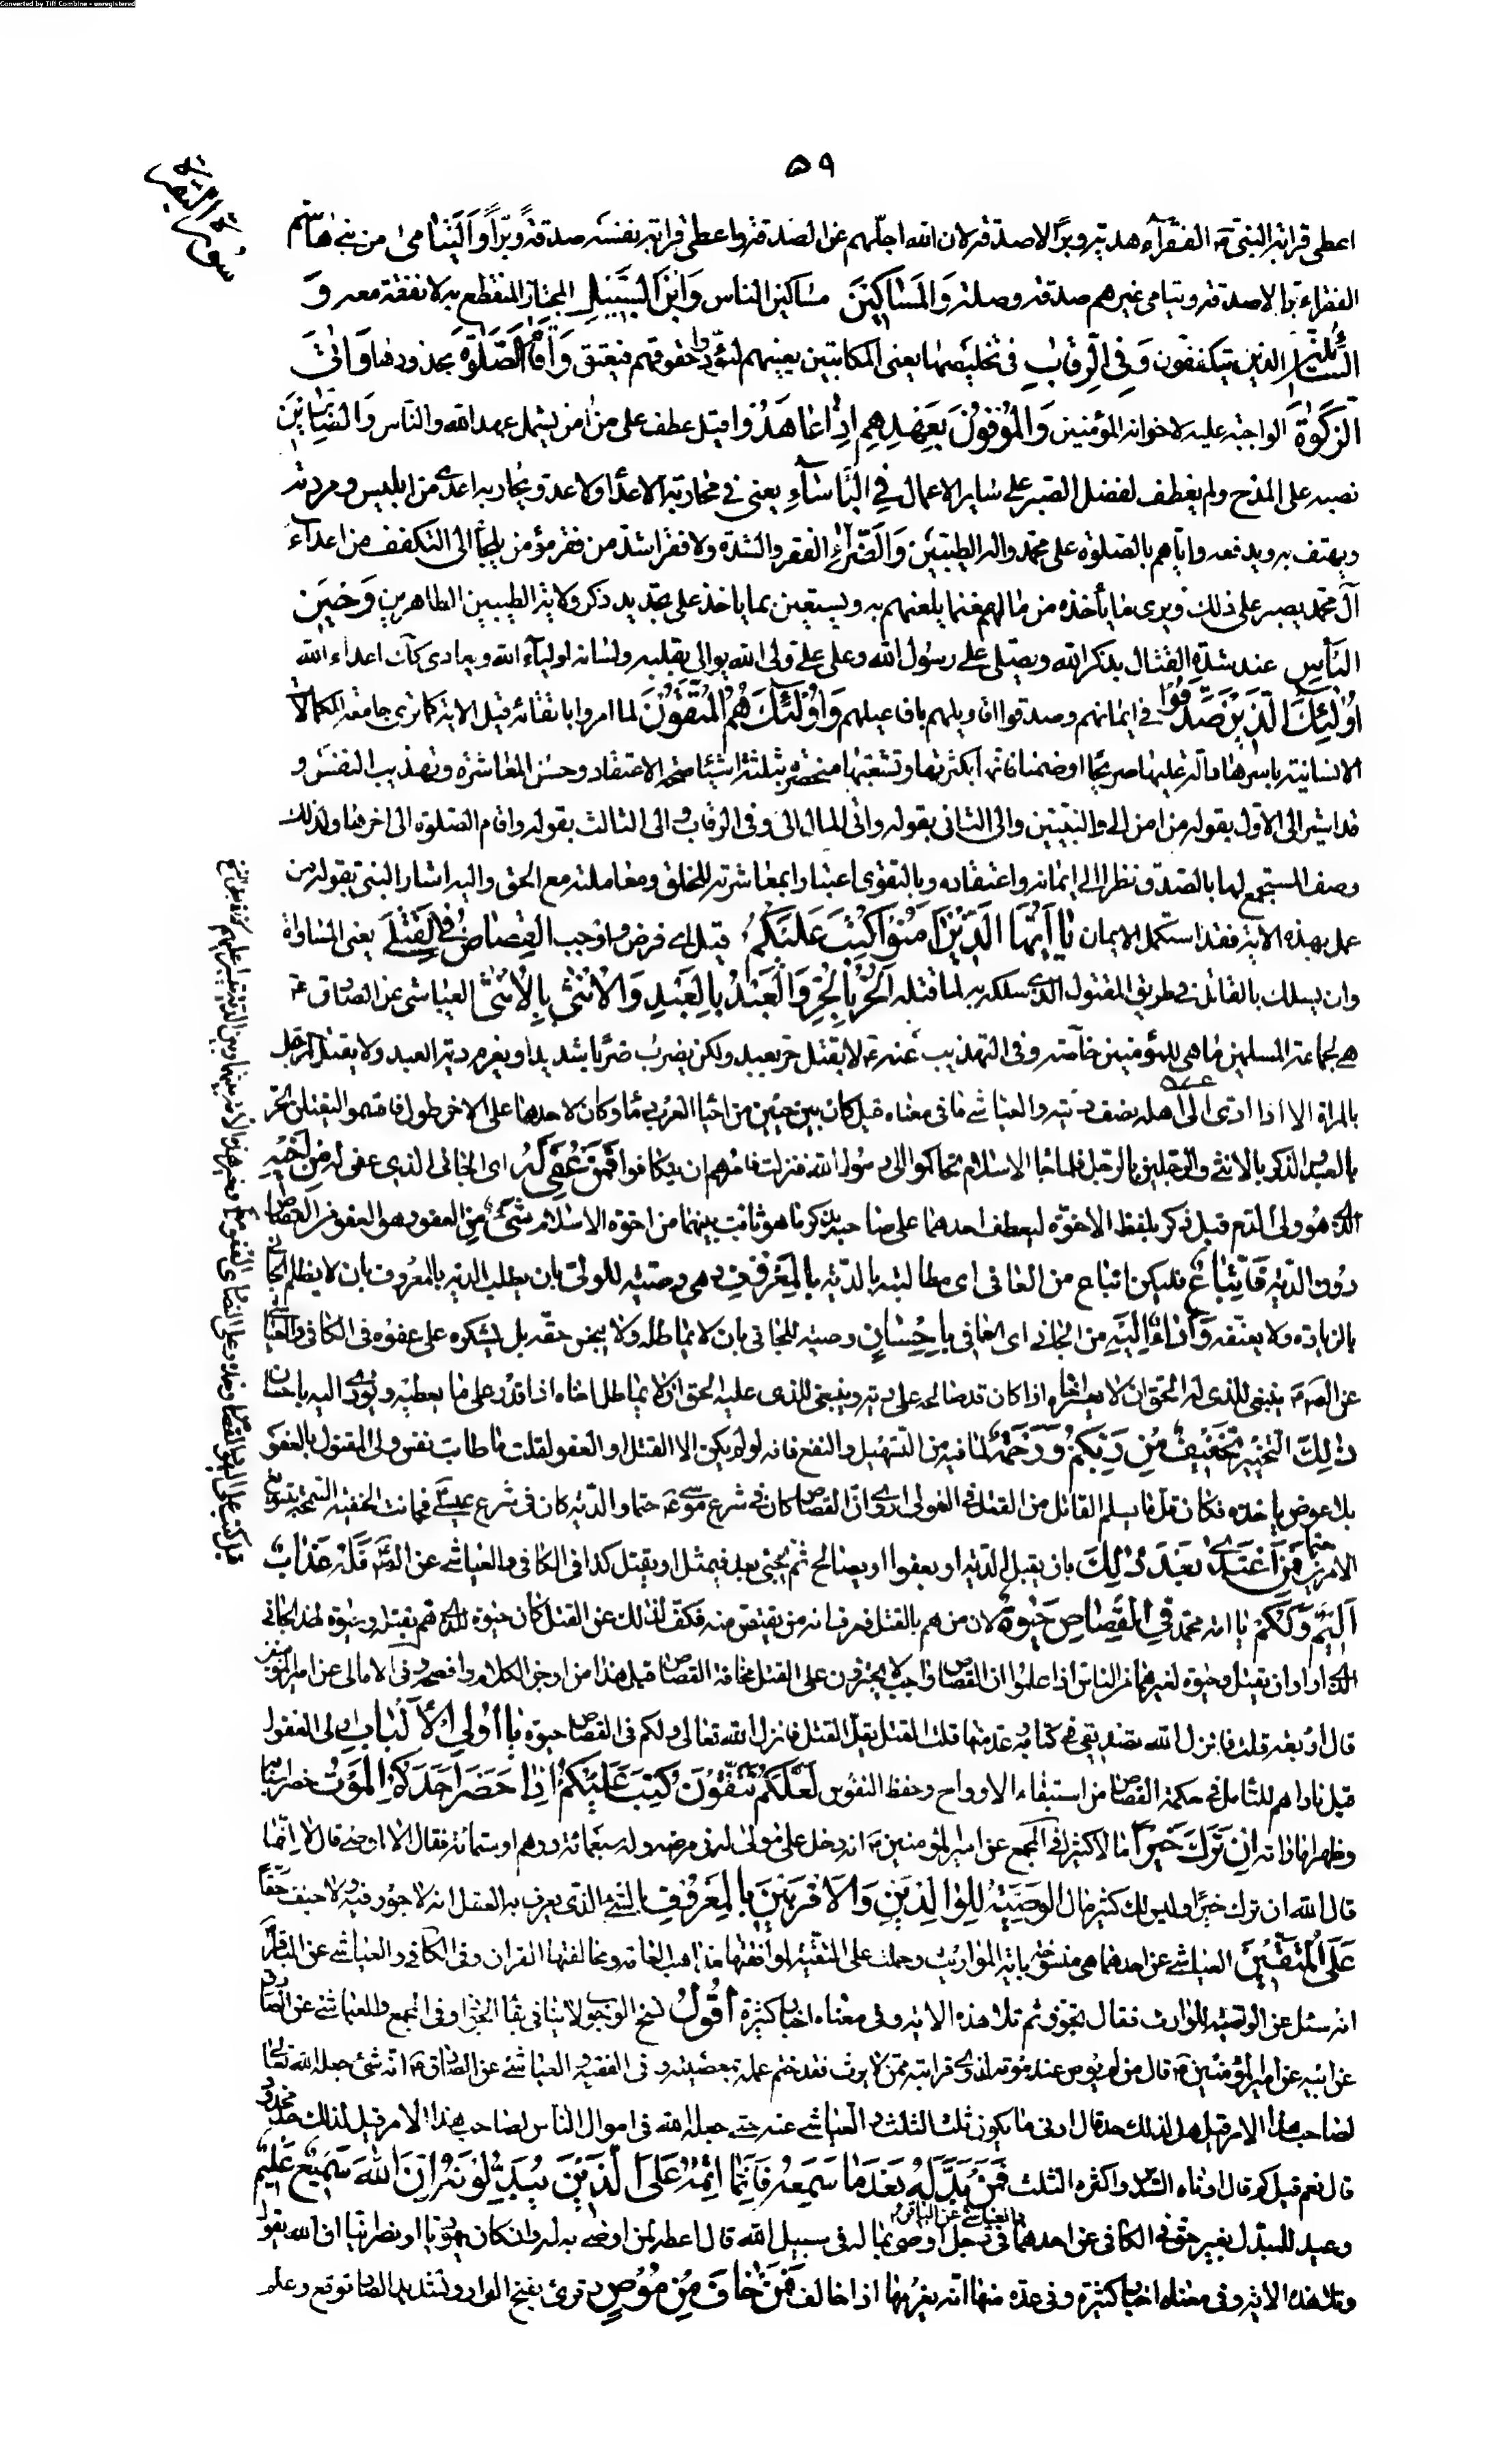 Converted by Tiff Combine - unregistered
٥٩
سورة البقرة
اعطى قرابة النبي ص الفقراء هدية وبرا لا صدقة لان الله اجلهم عن الصدقة واعطى قرابة نفسه صدقة وبرا وَالْيَتَامى من بني هاشم
الفقراء برا لا صدقة ويتامى غيرهم صدقة وصلة وَالْمَسَاكِينَ مساكين الناس وَابْنَ السَّبِيلِ المجتاز المنقطع به لا نفقة معه وَ
السَّائِلِينَ الذين يتكففون وَفِي الرِّقَابِ في تخليصها يعني المكاتبين يعينهم ليؤدوا حقوقهم فيعتق وَأَقَامَ الصَّلوةَ بحدودها وَاتَى
الزَّكوةَ الواجبة عليه لاخوانه المؤمنين وَالْمُوفُونَ بِعَهْدِهِمْ إِذَا عَاهَدُوا قيل عطف على من امن يشمل عهد الله والناس وَالصَّابِرِينَ
نصبه على المدح ولم يعطف لفضل الصبر على ساير الاعمال فِي الْبَأْسَاءِ يعني في محاربة الاعداء ولا عدو يحاربه اعدى من ابليس ومردته
ويهتف به ويدفعه واياهم بالصلوة على محمد واله الطيبين وَالضَّرَّاءِ الفقر والشدة ولا فقر اشد من فقر مؤمن يلجأ الى التكفف من اعداء
آل محمد يصبر على ذلك ويرى ما يأخذه من مالهم مغنما يلعنهم به ويستعين بما ياخذ على تجديد ذكر ولاية الطيبين الطاهرين وَحِينَ
الْبَأْسِ عند شدة القتال يذكر الله ويصلي على رسول الله وعلى علي ولي الله يوالي بقلبه ولسانه اولياء الله ويعادي كذلك اعداء الله
أُولئِكَ الَّذِينَ صَدَقُوا في ايمانهم وصدقوا اقاويلهم بافاعيلهم وَأُولئِكَ هُمُ الْمُتَّقُونَ لما امروا باتقائه قيل الاية كما ترى جامعة للكمالات
الانسانية باسرها دالة عليها صريحا او ضمنا فانها بكثرتها وتشعبها منحصرة بثلثة اشياء صحة الاعتقاد وحسن المعاشرة وتهذيب النفس و
قد اشير الى الاول بقوله من امن الى والنبيين والى الثاني بقوله واتى المال الى وفي الرقاب والى الثالث بقوله واقام الصلوة الى اخرها ولذلك
وصف المستجمع لها بالصدق نظرا الى ايمانه واعتقاده وبالتقوى اعتبارا بمعاشرته للخلق ومعاملته مع الحق واليه اشار النبي بقوله من
عمل بهذه الاية فقد استكمل الايمان يَا أَيُّهَا الَّذِينَ آمَنُوا كُتِبَ عَلَيْكُمُ قيل اي فرض واوجب الْقِصَاصُ فِي الْقَتْلى يعني المساواة
وان يسلك بالقاتل في طريق المقتول الذي سلكه به لما قتله الْحُرُّ بِالْحُرِّ وَالْعَبْدُ بِالْعَبْدِ وَالْأُنْثى بِالْأُنْثى العياشي عن الصادق ع
هي لجماعة المسلمين ما هي للمؤمنين خاصة وفي التهذيب عنه ع لا يقتل حر بعبد ولكن يضرب ضربا شديدا ويغرم دية العبد ولا يقتل الرجل
بالمراة الا اذا ادى الى اهله نصف ديته والعياشي ما في معناه قيل كان بين حيين من احياء العرب دماء وكان لاحدهما على الاخر طول فاقسموا لنقتلن الحر
بالعبد والذكر بالانثى والرجلين بالرجل فلما جاء الاسلام تحاكموا الى رسول الله فنزلت فامرهم ان يتكافوا فَمَنْ عُفِيَ لَهُ اي الجاني الذي عفي له مِنْ أَخِيهِ
الذي هو ولي الدم قيل ذكر بلفظ الاخوة ليعطف احدهما على صاحبه بذكر ما هو ثابت بينهما من اخوة الاسلام شَيْءٌ من العفو وهو العفو من القصاص
دون الدية فَاتِّبَاعٌ فليكن اتباع من العافي اي مطالبته بالدية بِالْمَعْرُوفِ وهي وصية للولي بان يطلب الدية بالمعروف بان لا يظلم الجاني
بالزيادة ولا يعنفه وَأَدَاءٌ إِلَيْهِ من الجاني اي العافي بِإِحْسَانٍ وصية للجاني بان لا يماطله ولا يبخس حقه بل يشكره على عفوه في الكافي والعياشي
عن الصم ينبغي للذي له الحق ان لا يعسر اخاه اذا كان قد صالحه على دية وينبغي للذي عليه الحق ان لا يماطل اخاه اذا قدر على ما يعطيه ويؤدي اليه باحسان
ذلِكَ التخيير تَخْفِيفٌ مِنْ رَبِّكُمْ وَرَحْمَةٌ لما فيه من التسهيل والنفع فانه لو لم يكن الا القتل او العفو لقلت ما طابت نفس ولي المقتول بالعفو
بلا عوض ياخذه فكان قل ما يسلم القاتل من القتل في العوالي روي ان القصاص كان في شرع موسى ع حتما والدية كان في شرع عيسى ع حتما فجاءت الحنفية السمحة بتسويغ
الامرين فَمَنِ اعْتَدى بَعْدَ ذلِكَ بان يقبل الدية او يعفوا او يصالح ثم يجيء بعد فيمثل او يقتل كذا في الكافي والعياشي عن الصم فَلَهُ عَذَابٌ
أَلِيمٌ وَلَكُمْ يا امة محمد فِي الْقِصَاصِ حَيوةٌ لان من هم بالقتل فعرف انه يقتص منه فكف لذلك عن القتل كان حيوة للذي هم بقتله وحيوة لهذا الجاني
الذي اراد ان يقتل وحيوة لغيرهما من الناس اذا علموا ان القصاص واجب لا يجترؤن على القتل مخافة القصاص قيل هذا من اوجز الكلام وافصحه وفي الامالي عن امير المؤمنين
قال اربعة قلت فانزل الله تصديقي في كتابه وعد منها قلت القتل يقل القتل فانزل الله تعالى ولكم في القصاص حيوة يَا أُولِي الْأَلْبَابِ اولي العقول
قيل ناداهم للتامل في حكمة القصاص من استبقاء الارواح وحفظ النفوس لَعَلَّكُمْ تَتَّقُونَ كُتِبَ عَلَيْكُمْ إِذَا حَضَرَ أَحَدَكُمُ الْمَوْتُ حضر اسبابه
وظهر اماراته إِنْ تَرَكَ خَيْرًا مالا كثيرا في المجمع عن امير المؤمنين ع انه دخل على مولى له في مرضه وله سبعمائة درهم او ستمائة فقال الا اوصي قال لا انما
قال الله ان ترك خيرا وليس لك كثير مال الْوَصِيَّةُ لِلْوَالِدَيْنِ وَالْأَقْرَبِينَ بِالْمَعْرُوفِ بالشيء الذي يعرف به العقل انه لا جور فيه ولا حيف حَقًّا
عَلَى الْمُتَّقِينَ العياشي عن احدهما هي منسوخة باية المواريث وحملت على التقية لموافقتها مذاهب العامة ومخالفتها القران وفي الكافي والعياشي عن الباقر ع
انه سئل عن الوصية للوارث فقال تجوز ثم تلا هذه الاية وفي معناه اخبار كثيرة أقول نسخ الوجوب لا ينافي بقاء الجواز وفي المجمع والعياشي عن الصادق
عن ابيه عن امير المؤمنين ع قال من لم يوص عند موته لذوي قرابته ممن لا يرث فقد ختم عمله بمعصية وفي الفقيه والعياشي عن الصادق ع انه شيء جعله الله تعالى
لصاحب هذا الامر قيل هل لذلك حد قال ادنى ما يكون ثلث الثلث والعياشي عنه حق جعله الله في اموال الناس لصاحب هذا الامر قيل لذلك حد محدود
قال نعم قيل كم قال ادناه السدس واكثره الثلث فَمَنْ بَدَّلَهُ بَعْدَمَا سَمِعَهُ فَإِنَّمَا إِثْمُهُ عَلَى الَّذِينَ يُبَدِّلُونَهُ إِنَّ اللهَ سَمِيعٌ عَلِيمٌ
وعيد للمبدل بغير حق في الكافي عن احدهما والعياشي عن الباقر ع في رجل اوصى بماله في سبيل الله قال اعطه لمن اوصى به له وان كان يهوديا او نصرانيا ان الله يقول
وتلا هذه الاية وفي معناه اخبار كثيرة وفي عدة منها انه يغرمها اذا خالف فَمَنْ خَافَ مِنْ مُوصٍ وقرئ بفتح الواو وتشديد الصاد توقع وعلم
قيل كتب على اليهود القصاص وحده وعلى النصارى العفو مطلقا وخير هذه الامة بينهما وبين الدية تيسيرا عليهم